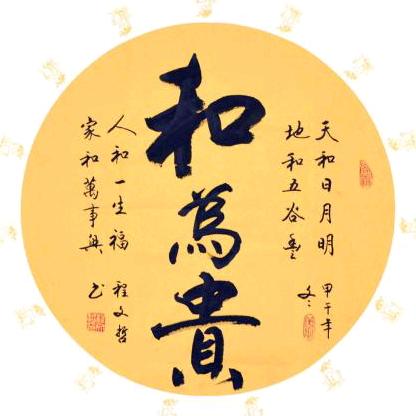 天和日月明 甲午年
地和五谷豐 冬
和為貴
人和一生福 程文哲
家和萬事興 书